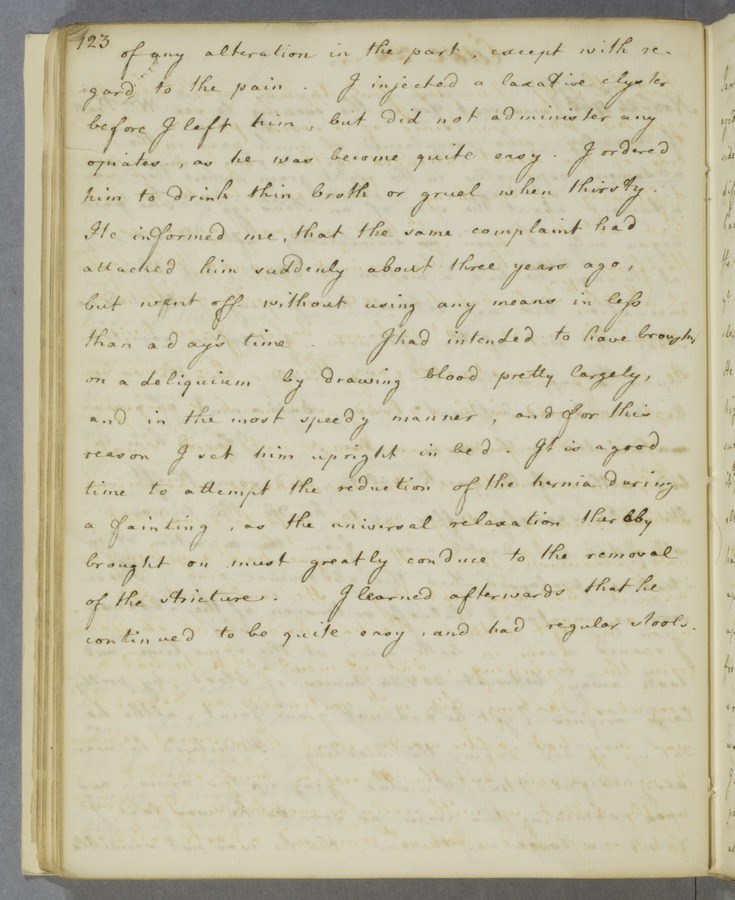 123
of any alteration in the part, except with re-
gard to the pain. I injected a laxative clyster
before I left him, but did not administer any
opiates, as he was become quite easy. I ordered
him to drink thin broth or gruel when thirsty.
He informed me, that the same complaint had
attacked him suddenly about three years ago,
but went off without using any means in less
than a day's time. I had intended to have brought
on a deliquium by drawing blood pretty largely,
and in the most speedy manner, and for this
reason I set him upright in bed. It is a good
time to attempt the reduction of the hernia during
a fainting, as the universal relaxation thereby
brought on must greatly conduce to the removal
of the stricture. I learned afterwards that he
continued to be quite easy, and had regular stools.